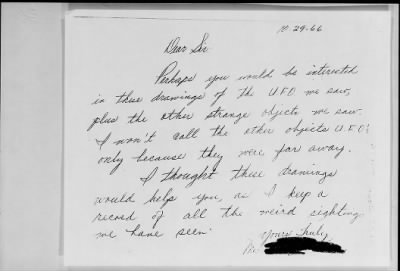 10-29-66
Dear Sir
Perhaps you would be interested
in these drawings of the UFO we saw,
plus the other strange objects we saw.
I won't call the other objects U.F.O's
only because they were far away.
I thought these drawings
would help you, as I keep a
record of all the weird sightings
we have seen.
Yours Truly